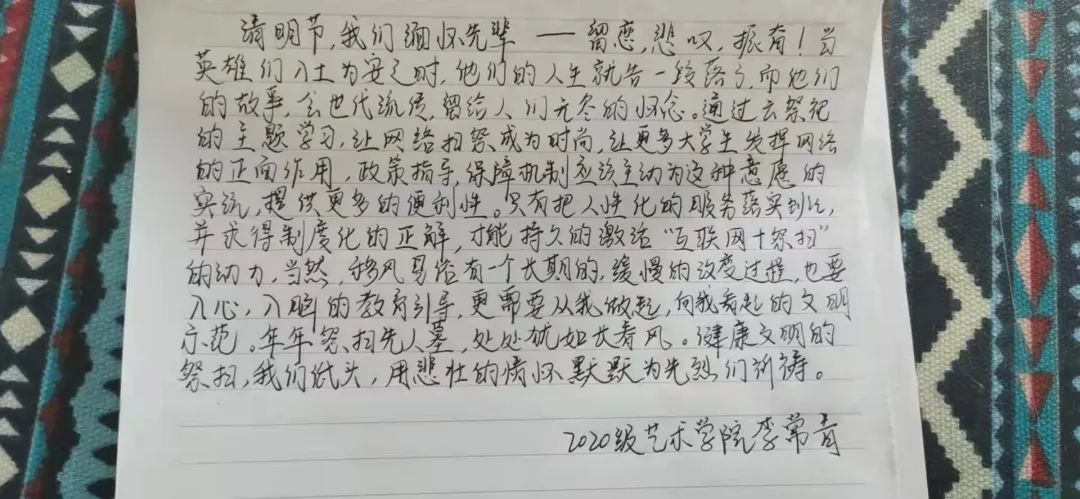 清明节，我们缅怀先辈——留恋，悲叹，振奋！当
英雄们入土为安之时，他们的人生就告一段落了，而他们
的故事，会世代流传，留给人们无尽的怀念。通过云祭祀
的主题学习，让网络扫祭成为时尚，让更多大学生发挥网络
的正向作用，政策指导，保障机制应该主动为这种意愿的
实现，提供更多的便利性。只有把人性化的服务落实到位，
并求得制度化的正解，才能持久的激活“互联网+祭扫”
的动力，当然，移风易俗有一个长期的，缓慢的改变过程，也要
入心，入脑的教育引导，更需要从我做起，向我看起的文明
示范。年年祭扫先人墓，处处犹如长青风。健康文明的
祭扫，我们低头，用悲壮的情怀默默为先烈们祈祷。
2020级艺术学院李常青